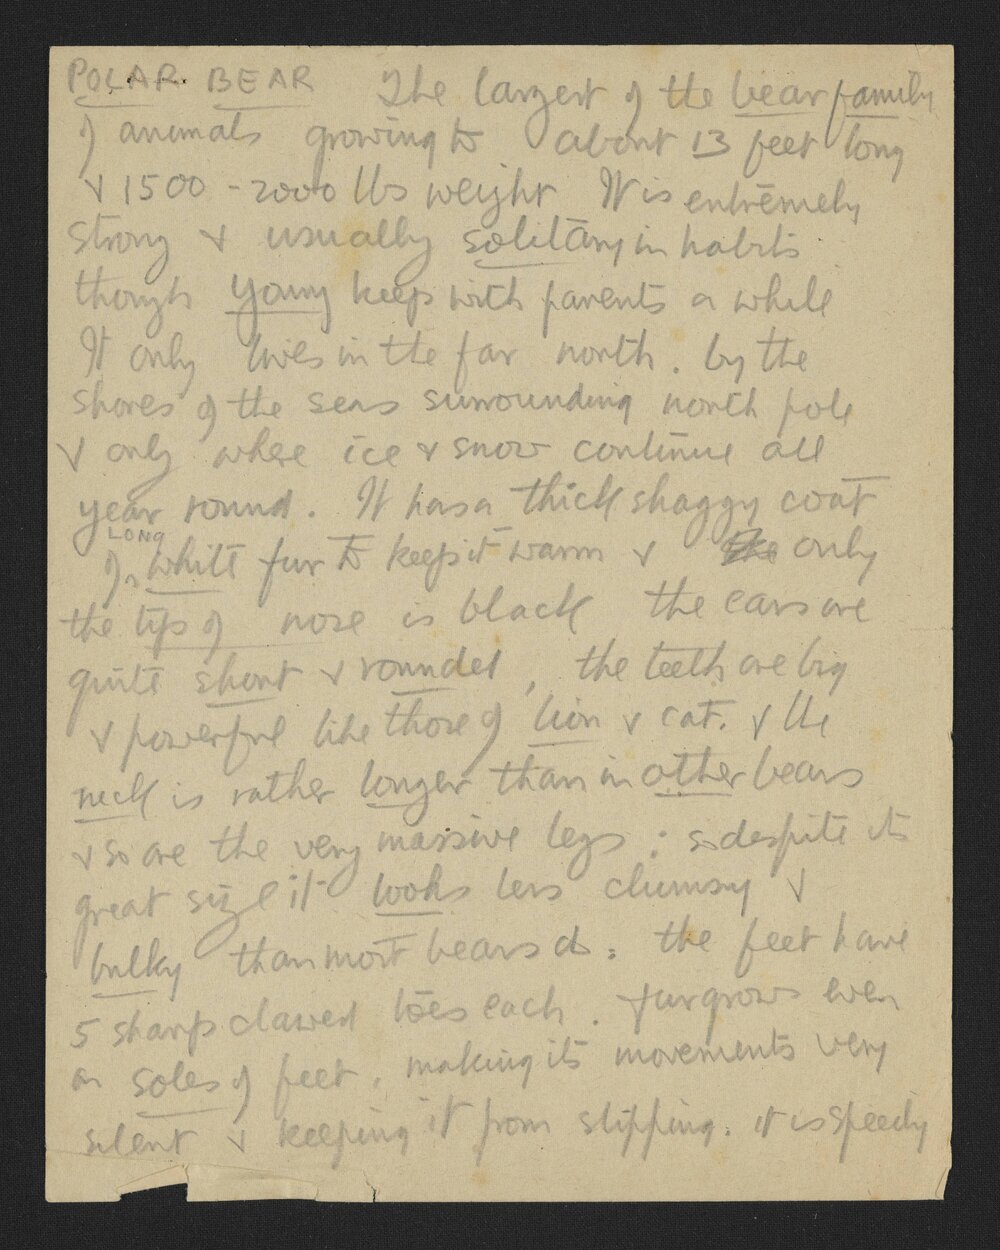 POLAR BEAR The largest of the bear family
of animals growing to about 13 feet long
& 1500 - 2000 lbs weight It is extremely
strong & usually solitary in habits
though young keep with parents a while
It only lives in the far north. by the
shores of the seas surrounding north pole
& only where ice & snow continue all
year round. It has a thick shaggy coat
of LONG white fur to keep it warm & the only
the tips of nose is black the ears are
quite short & rounded, the teeth are big
& powerful like those of lion & cat. & the
neck is rather longer than in other bears
& so are the very massive legs : so despite its
great size it looks less clumsy &
bulky than most bears do : the feet have
5 sharp clawed toes each. fur grows even
on soles of feet, making its movements very
silent & keeping it from slipping. it is speedy